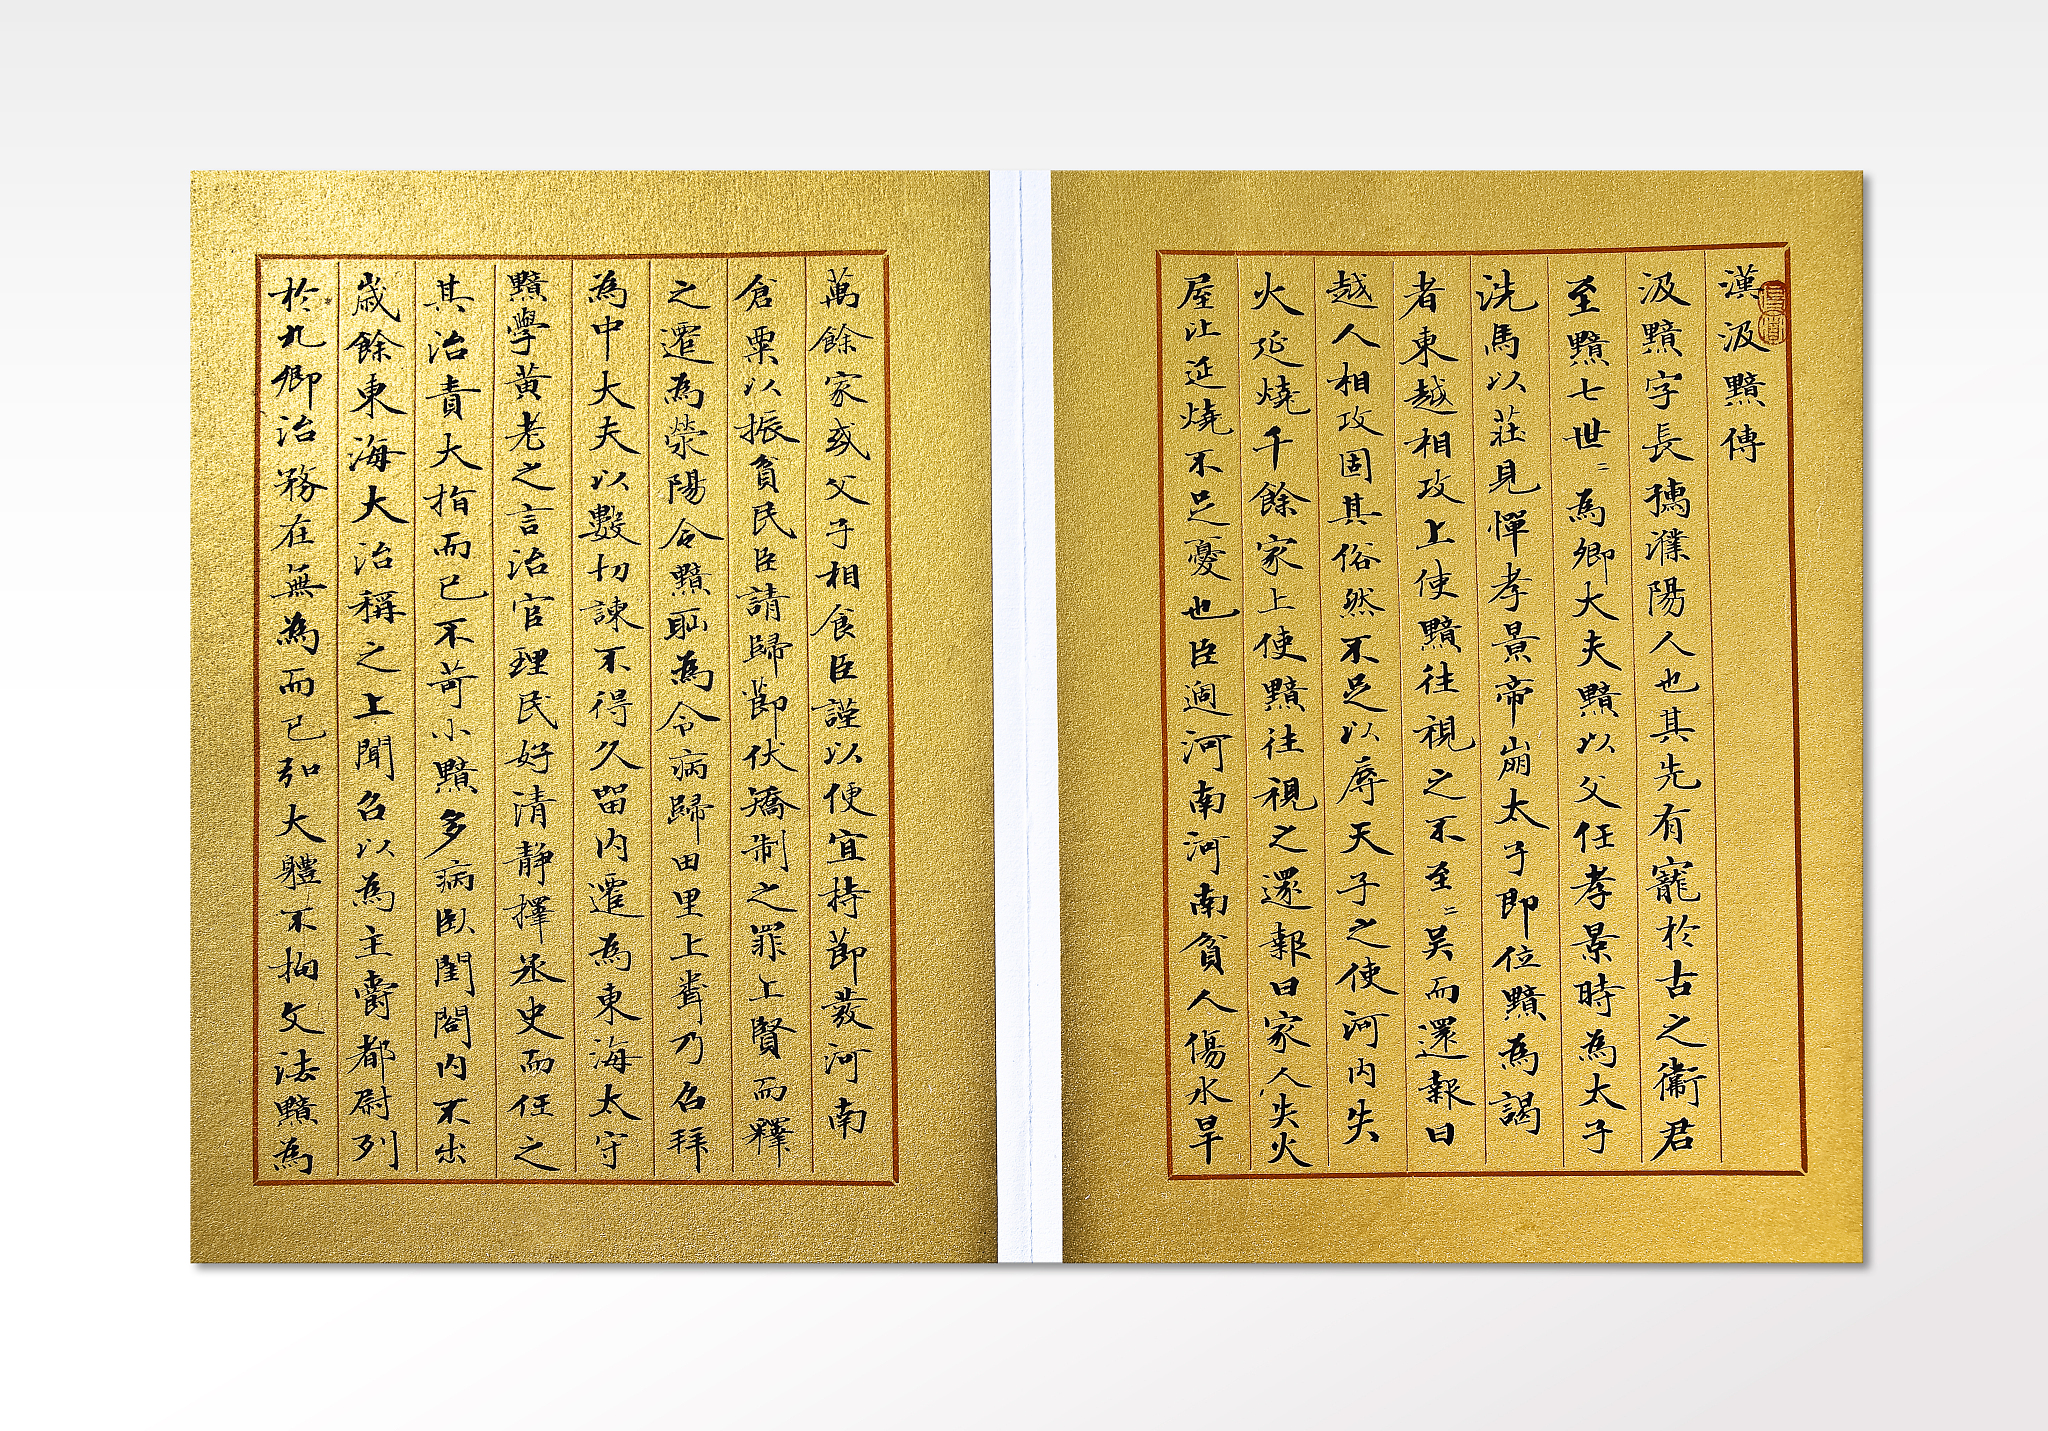 漢汲黯傳
汲黯字長孺濮陽人也其先有寵於古之衞君
至黯七世〻為卿大夫黯以父任孝景時為太子
洗馬以莊見憚孝景帝崩太子即位黯為謁
者東越相攻上使黯往視之不至〻吳而還報曰
越人相攻固其俗然不足以辱天子之使河內失
火延燒千餘家上使黯往視之還報曰家人失火
屋比延燒不足憂也臣過河南河南貧人傷水旱
萬餘家或父子相食臣謹以便宜持節發河南
倉粟以振貧民臣請歸節伏矯制之罪上賢而釋
之遷為滎陽令黯恥為令病歸田里上聞乃召拜
為中大夫以數切諫不得久留內遷為東海太守
黯學黃老之言治官理民好清靜擇丞史而任之
其治責大指而已不苛小黯多病臥閨閤內不出
歲餘東海大治稱之上聞召以為主爵都尉列
於九卿治務在無為而已引大體不拘文法黯為